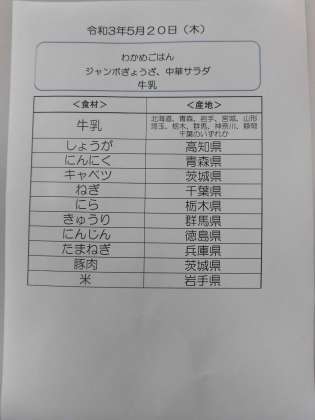 令和3年5月20日（木）
わかめごはん
ジャンボぎょうざ、中華サラダ
牛乳
＜食材＞ ＜産地＞
牛乳 北海道、青森、岩手、宮城、山形
埼玉、栃木、群馬、神奈川、静岡
千葉のいずれか
しょうが 高知県
にんにく 青森県
キャベツ 茨城県
ねぎ 千葉県
にら 栃木県
きゅうり 群馬県
にんじん 徳島県
たまねぎ 兵庫県
豚肉 茨城県
米 岩手県